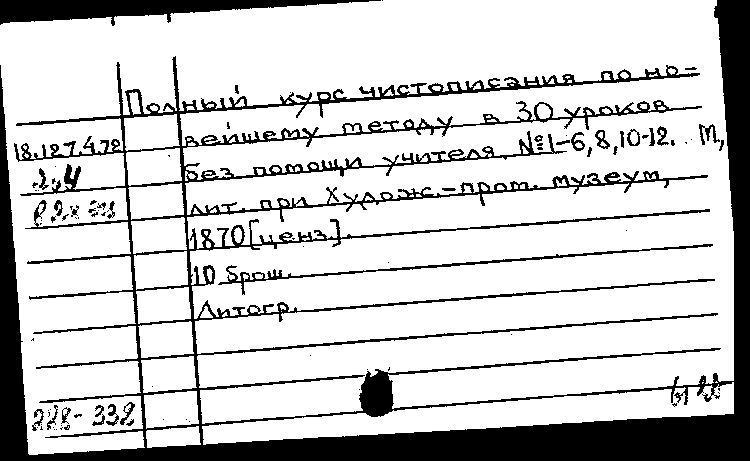 Полный курс чистописания по но-
18.127.4.72 вейшему методу в 30 уроков
без помощи учителя. №1-6,8,10-12. М,
лит. при Худож.-пром. музеум,
1870[ценз.].
10 брош.
Литогр.
228-332